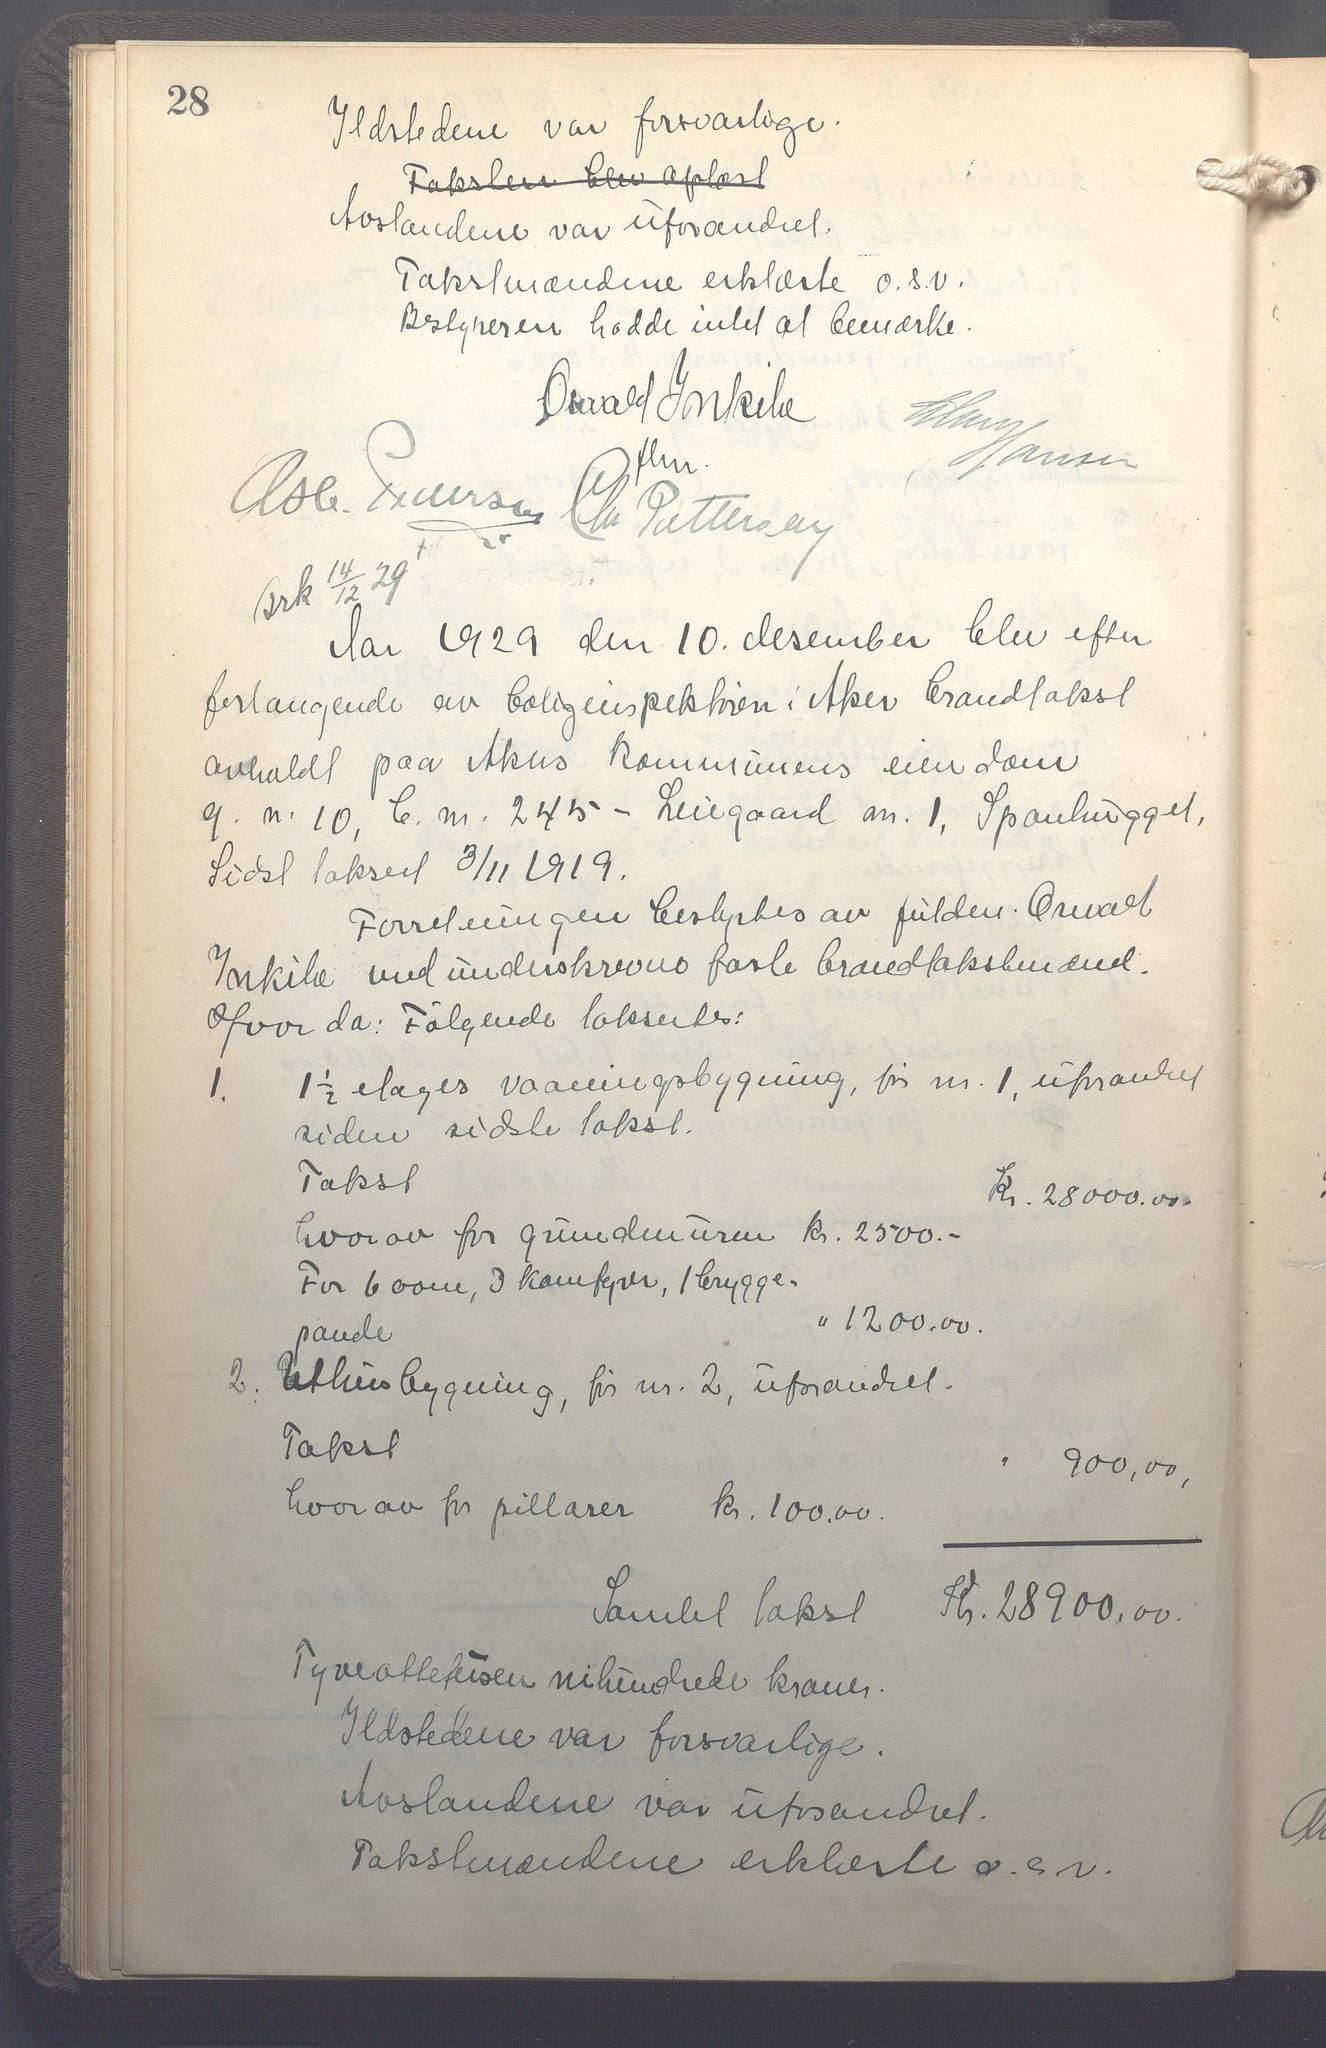 28
Ildstedene var forsvarlige.
Taksten blev oplæst
Avstandene var uforandret.
Takstmændene erklærte o.s.v.
Bestyreren hadde intet at bemærke.
Osvald Inkile
flm.
Hansen
Ask. Ch. Pettersen
Brk 14/12 29
Aar 1929 den 10. desember blev efter
forlangende av boliginspektøren i Aker brandtakst
avholdt paa Akers kommunens eiendom
g. n. 10, b. nr. 245 - Leiegaard nr. 1, Spanhugget,
Sidst taksert 3/11 1919.
Forretningen bestyrtes av fuldm. Osvald
Inkile med underskrevne faste brandtakstmænd.
Hvor da: Følgende taksertes:
1. 1½ etages vaaningsbygning, før nr. 1, uforandret
siden sidste takst.
Takst Kr. 28000.00
hvorav for grundmuren kr. 2500.-
For 6 ovne, 3 komfyrer, 1 brygge-
pande " 1200.00.
2. Uthusbygning, før nr. 2, uforandret.
Takst " 900,00,
hvorav for pillarer kr. 100.00.
Samlet takst Kr. 28900,00.
Tyveottetusen nihundrede kroner.
Ildstedene var forsvarlige.
Avstandene var uforandret.
Takstmændene erklærte o.s.v.